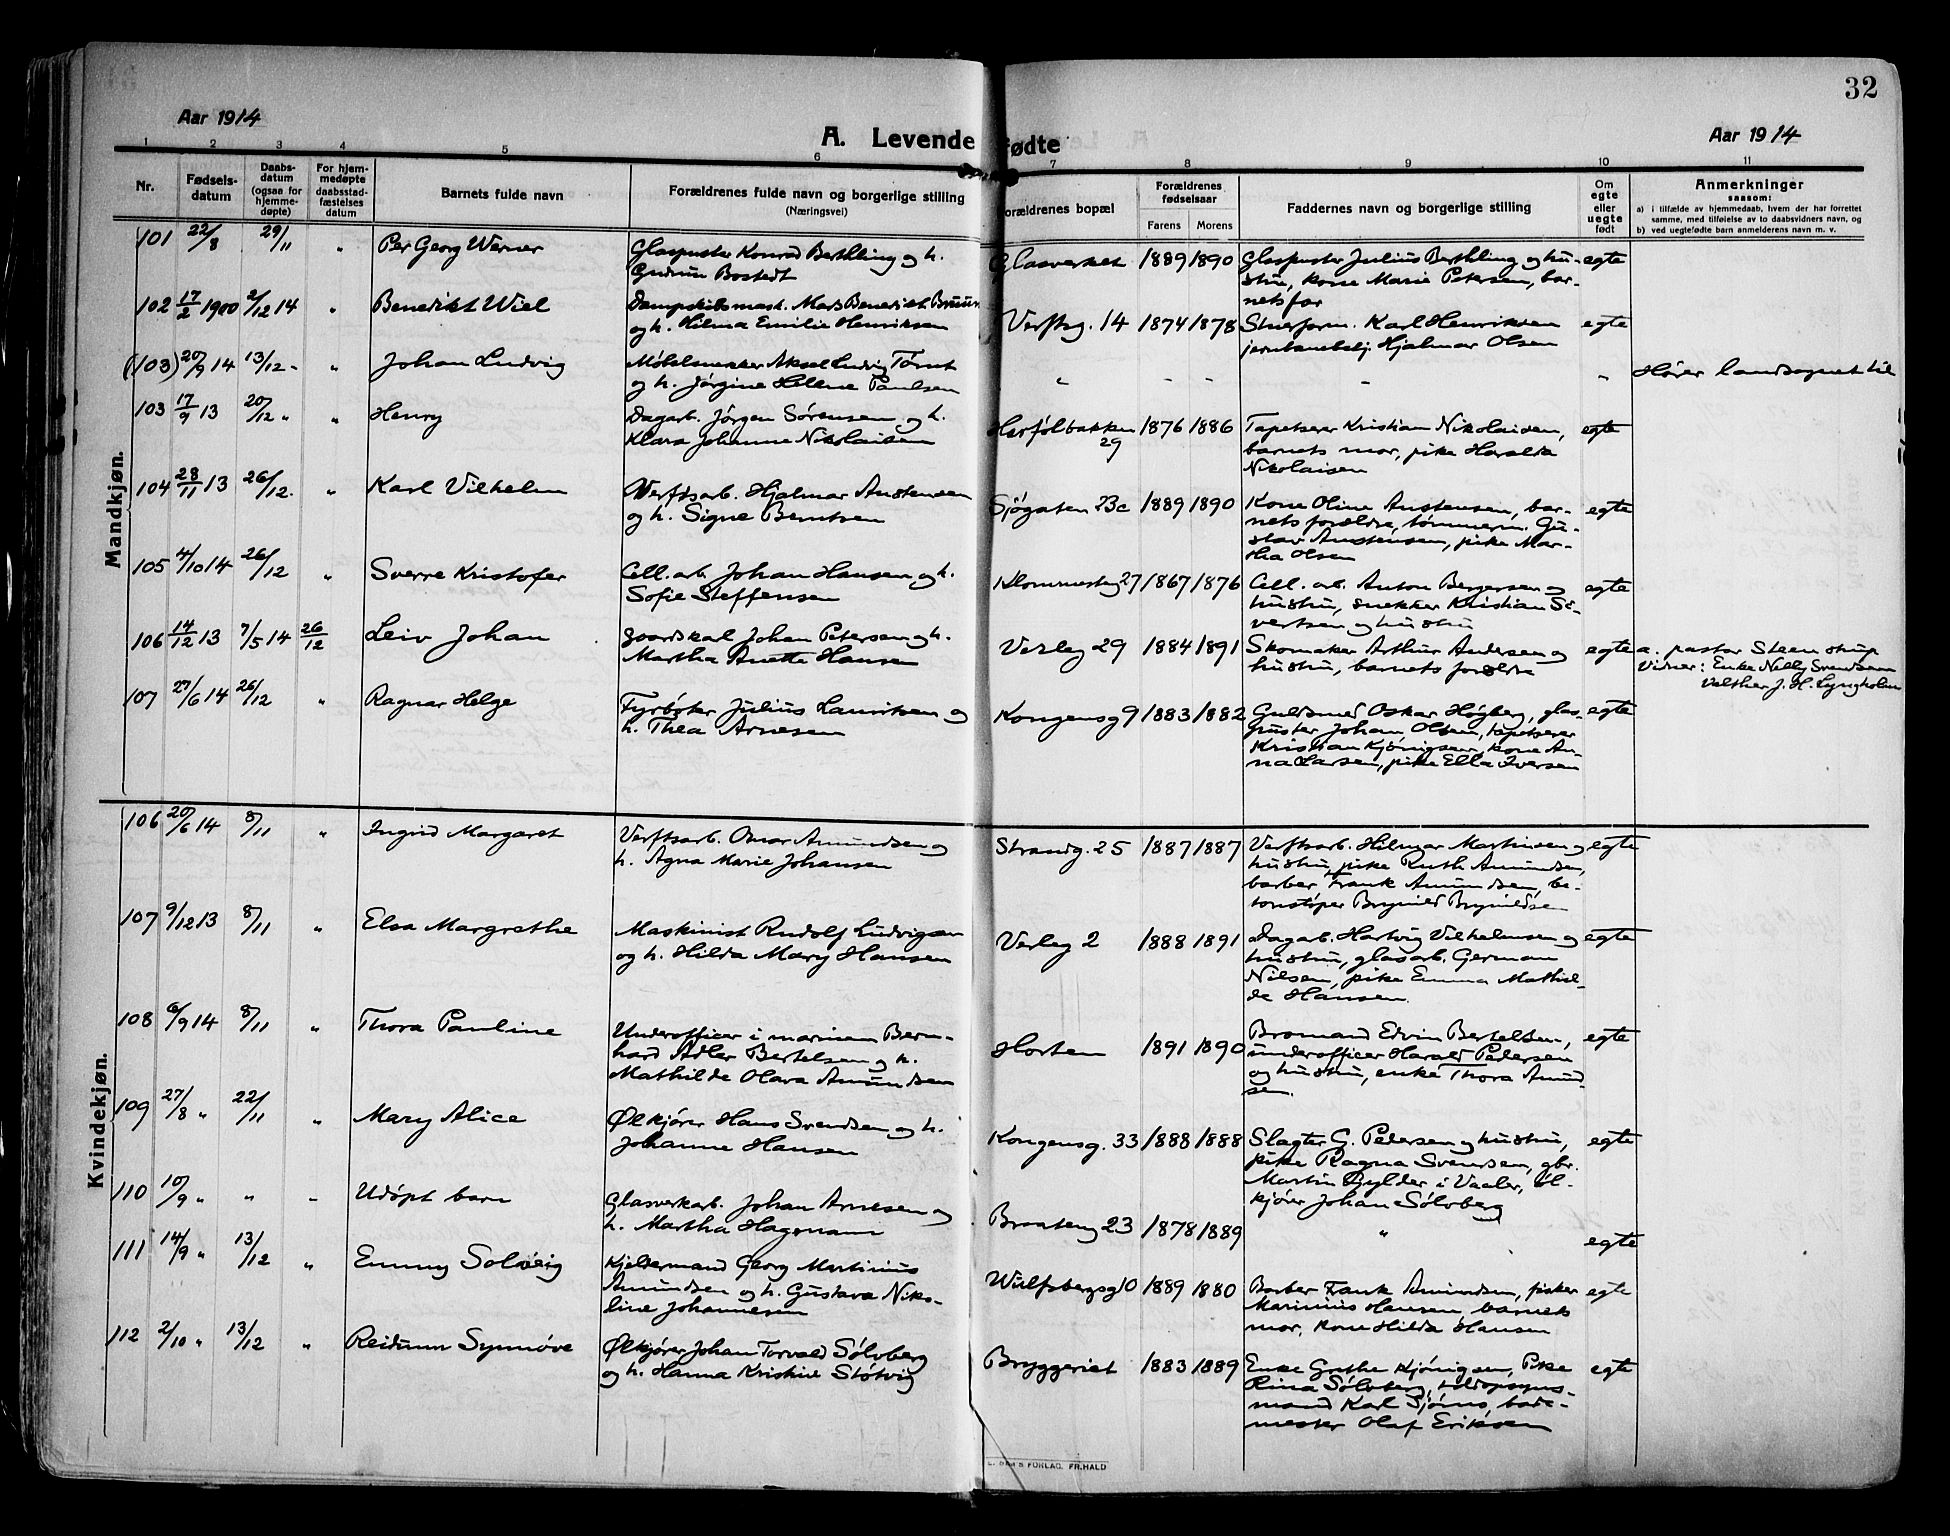 32
Aar 1914
A. Levende fødte
Aar 1914
1 2 3 4 5 6 7 8 9 10 11
Nr.
Fødsels-
datum
Daabs-
datum
(ogsaa for
hjemme-
døpte)
For hjem-
medøpte
daabsstad-
fæstelses
datum
Barnets fulde navn
Forældrenes fulde navn og borgerlige stilling
(Næringsvei)
Forældrenes bopæl
Forældrenes
fødselsaar
Farens Morens
Faddernes navn og borgerlige stilling
Om
egte
eller
uegte
født
Anmerkninger
saasom:
a) i tilfælde av hjemmedaab, hvem der har forrettet
samme, med tilføielse av to daabsvidners navn, og
b) ved uegtefødte barn anmelderens navn m. v.
Mandkjøn.
101 22/8 29/11 " Per Georg Werner
Glaspuster Konrad Berthling og h.
Gudrun Bostedt
Glasverket 1889 1890
Glaspuster Julius Berthling og hu-
stru, kone Marie Petersen, bar-
nets far
egte
102 17/2 1900 2/12 14 " Benedikt Wiel
Dampskibsmask. Mads Benedikt Bruun
og h. Hilma Emilie Henriksen
Verftsg. 14 1874 1878
Stuerform. Karl Henriksen
jernbanebetj. Hjalmar Olsen
egte
(103) 20/9 14 13/12 - " Johan Ludvig
Møbelsnekker Aksel Ludvig Tørnt
og h. Jørgine Helene Paulsen
" " " " "
Hører landsognet til
103 17/9 13 20/12 " " Henry
Dagarb. Jörgen Sörensen og h.
Klara Johanne Nikolaisen
Herfölbakken
29
1876 1886
Tapetserer Kristian Nikolaisen,
barnets mor, pike Haralda
Nikolaisen
egte
104 28/11 13 26/12. " Karl Vilhelm
Verftsarb. Hjalmar Austensen
og h. Signe Berntsen
Sjögaten 23c 1889 1890
Kone Oline Austensen, bar-
nets forældre, tømmerm. Gu-
stav Austensen, pike Mar-
tha Olsen
egte
105 4/10 14 26/12 " Sverre Kristofer
Cell. arb. Johan Hansen og h.
Sofie Steffensen
Glommestg 27 1867 1876
Cell. arb. Anton Bergersen og
hustru, snekker Kristian Si-
vertsen og hustru
egte
106 14/12 13 7/5 14 26/12 Leiv Johan
Gaardskarl Johan Petersen og h.
Martha Anette Hansen
Verleg 29 1884 1891
Skomaker Arthur Andersen og
hustru, barnets forældre
egte
a. pastor Steenstrup
Vidner: Enke Nelly Svendsen
Valther J. H. Lyngholm
107 27/6 14 26/12 " Ragnar Helge
Fyrbøter Julius Lauritsen og
h. Thea Arnesen
Kongensg 9 1883 1882
Guldsmed Oskar Høgberg, glas-
puster Johan Olsen, tapetserer
Kristian Kjönigsen, kone An-
na Larsen, pike Ella Iversen
egte
Kvindekjøn.
106 20/6 14 8/11 " Ingrid Margaret
Verftsarb. Omar Amundsen og
h. Agna Marie Johansen
Strandg. 25 1887 1887
Verftsarb. Hilmar Martinsen og
hustru, pike Ruth Amundsen,
barber Frank Amundsen, be-
tonstøper Brynild Brynildsen
egte
107 9/12 13 8/11 " Elsa Margrethe
Maskinist Rudolf Ludvigsen
og h. Hilda Mary Hansen
Verleg 2 1888 1891
Dagarb. Hartvig Vilhelmsen og
hustru, glasarb. German
Nilsen, pike Emma Mathil-
de Hansen.
egte
108 6/9 14 8/11 " Thora Pauline
Underofficer i marinen Bern-
hard Adler Bertelsen og h.
Mathilde Olara Amundsen
Horten 1891 1890
Bromand Edvin Bertelsen,
underofficer Harald Pedersen
og hustru, enke Thora Amund-
sen.
egte
109 27/8 " 22/11 " Mary Alice
Ølkjører Hans Svendsen og h.
Johanne Hansen
Kongensg. 33 1888 1888
Slagter G. Pedersen og hustru,
pike Ragna Svendsen, gbr.
Martin Gylder i Vaaler, øl-
kjører Johan Sölvberg
egte
110 10/9 " " " Udöpt barn
Glasverkarb. Johan Arnesen og
h. Martha Hagemann
Braateng 23 1878 1889
"
egte
111 14/9 " 13/12 " Emmy Solveig
Kjeldermand Georg Martinius
Amundsen og h. Gustava Niko-
line Johannesen
Wulfsbergsg 10 1889 1880
Barber Frank Amundsen, fisker
Marinius Hansen, barnets
mor, kone Hilda Hansen
egte
112 2/10 " 13/12 " Reidunn Synnøve
Ølkjører Johan Torvald Sölvberg
og h. Hanna Kristine Støtvig
Bryggeriet 1883 1889
Enke Grethe Kjönigsen, Pike
Rina Sölvberg, tildopsyns-
mand Karl Sjöma, bade-
mester Olaf Eriksen
egte
FORLAG. FR.HALD